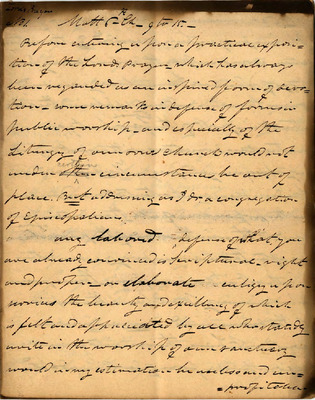 Matt 6th Ch. 9th &
Before entering upon a practical exposi-
tion of the Lords Prayer which has always
been regarded as an inspired form of devo-
tion - some remarks in defense of forms in
public worship - and especially of the
Liturgy of our own Church would not
under circumstances be out of
place. But addressing as I do a congregation
of Episcopalians
any labored defense of what you
are already convinced is scriptural - right
and proper - or elaborate eulogy upon
the beauty and excellency of which
is felt and appreciated by all who statedly
unite in the worship of our sanctuary
would in my estimation be useless and un-
profitable